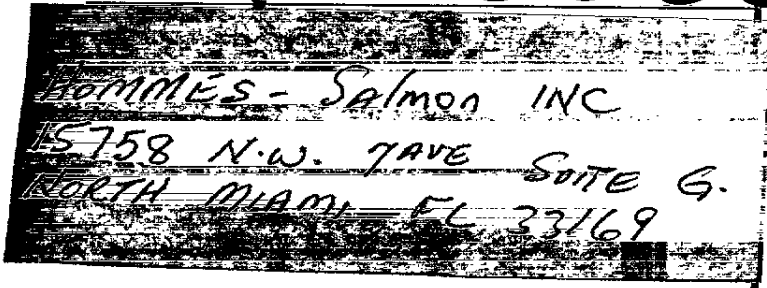 HOMMES - SAlmon INC
15758 N.W. 7AVE SUITE G.
NORTH MIAMI, FL 33169